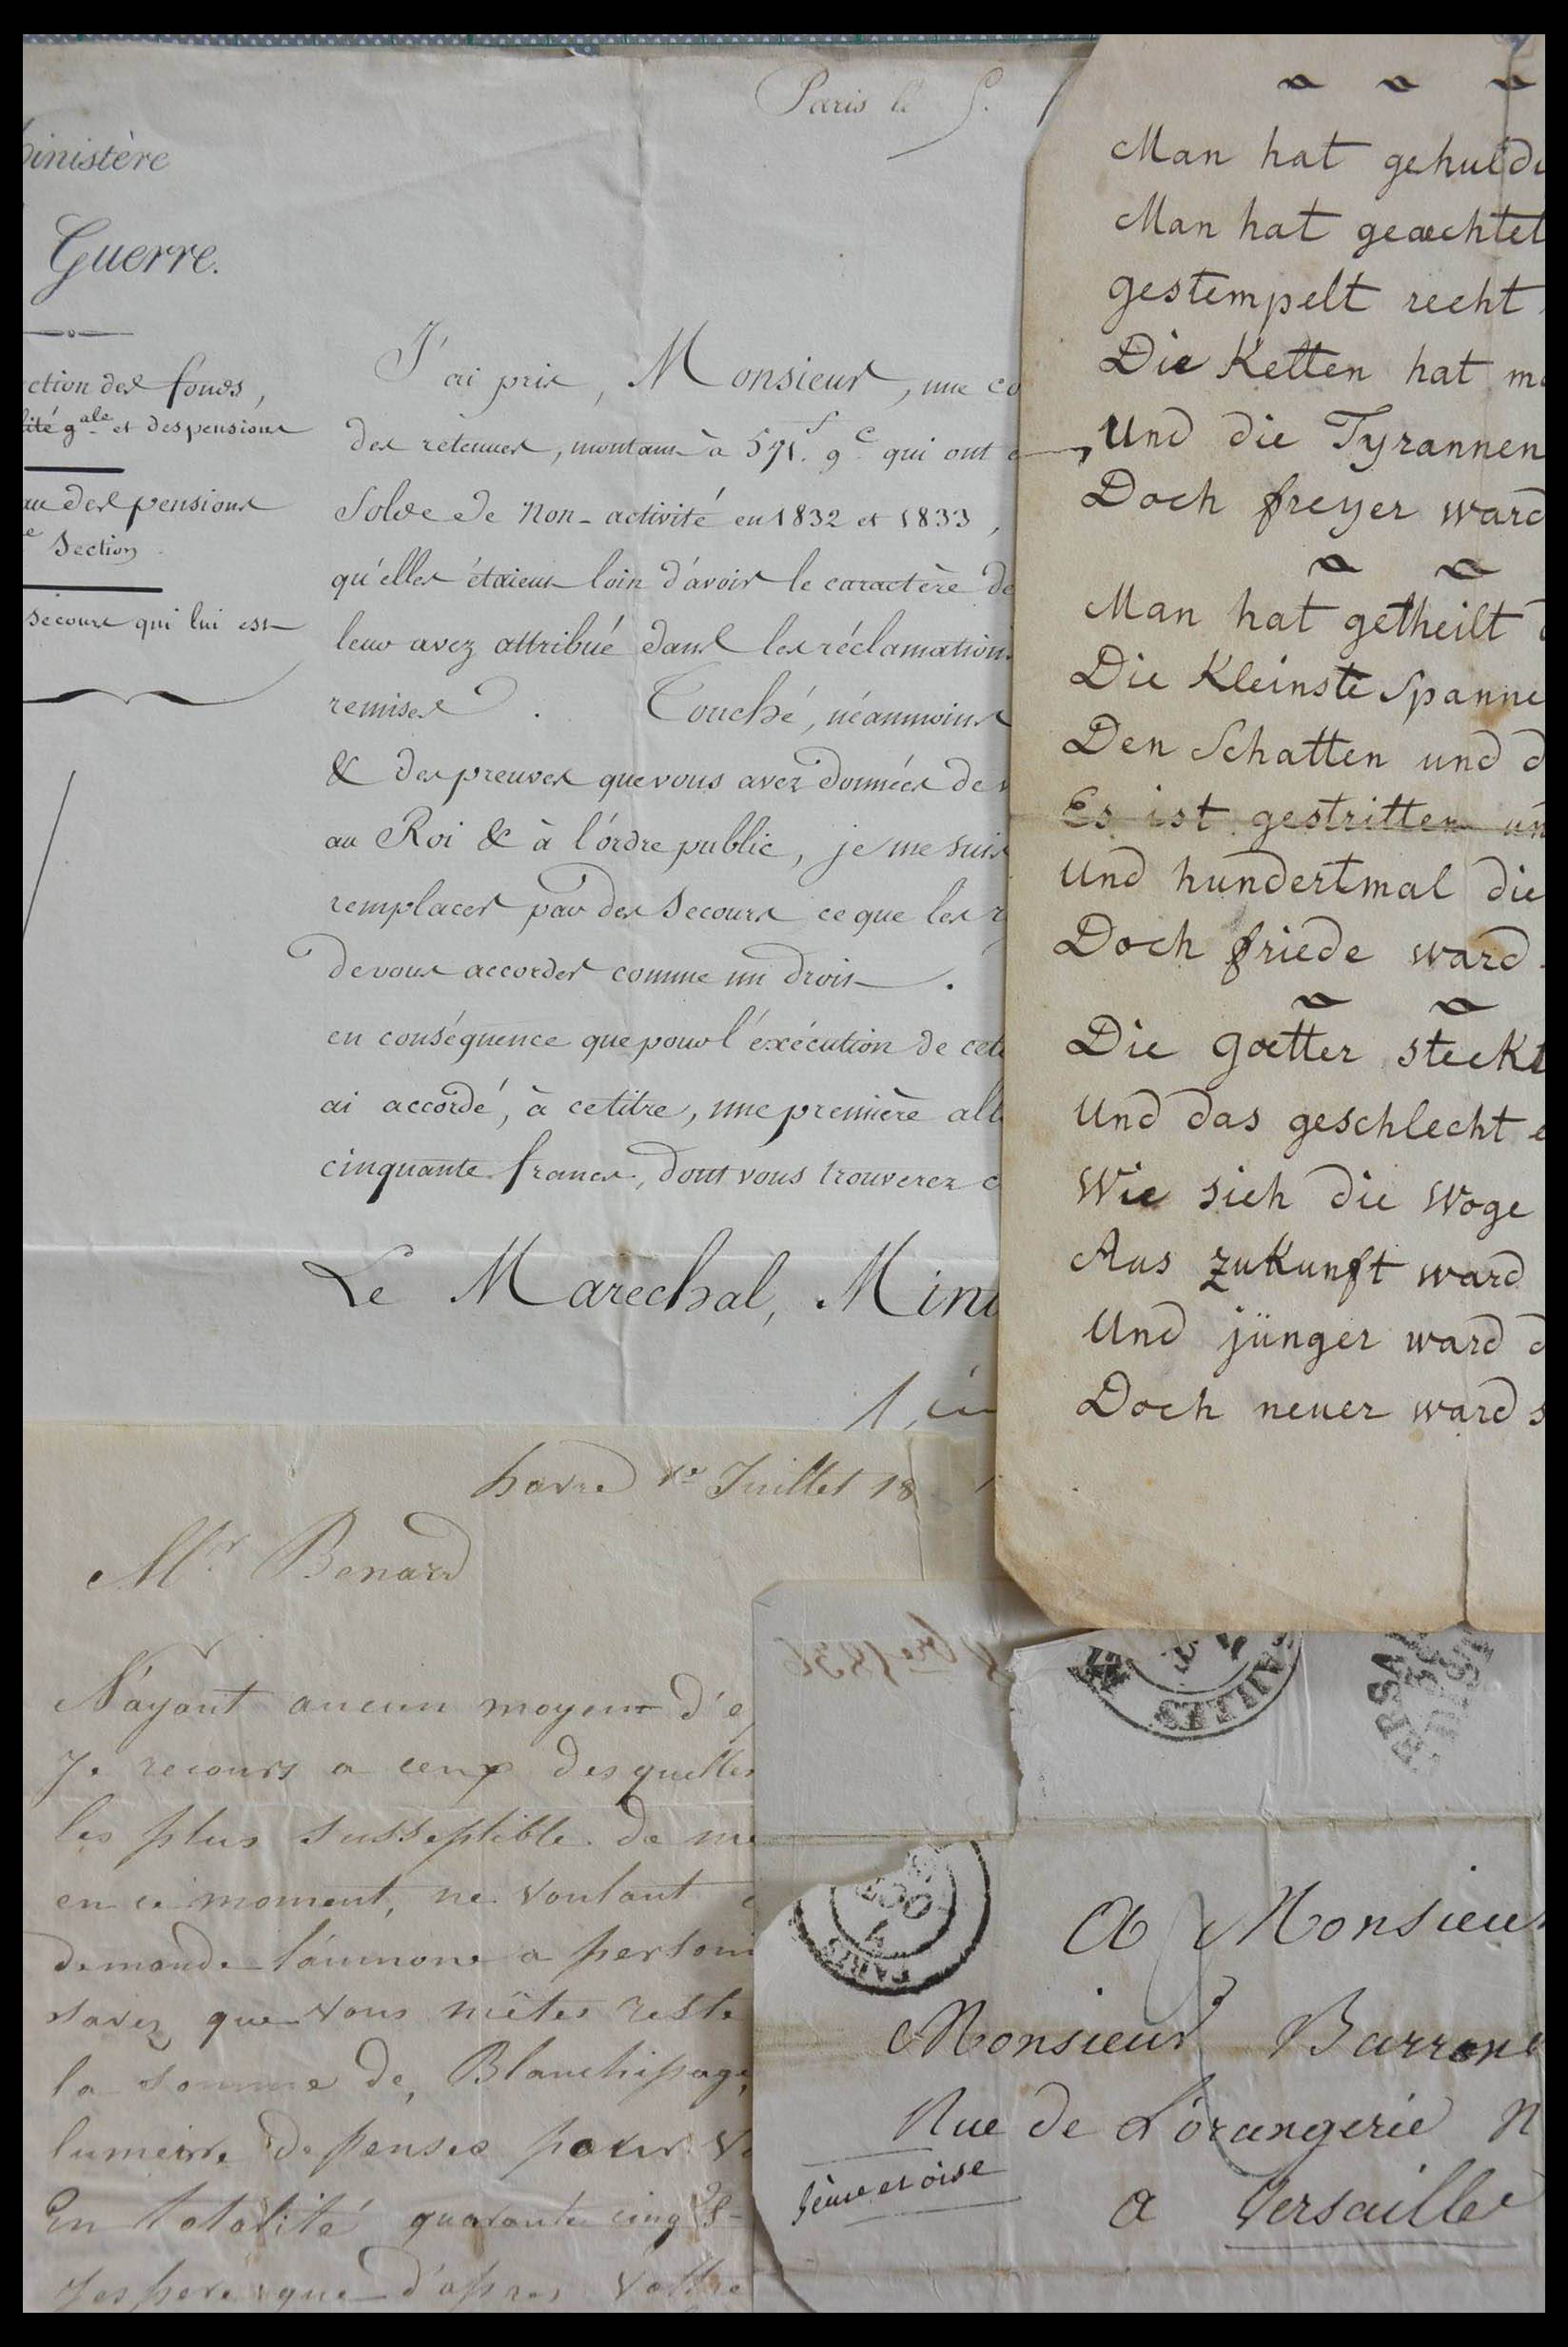 Paris le 5.
inistère
Guerre.
ction des fonds,
lité gale et des pensions
au des pensions
e Section
secours qui lui est
J'ai pris, Monsieur, une co
des retenues, montant à 571.f 9c qui ont
Solde de Non-activité en 1832 et 1833,
qu'elles étaient loin d'avoir le caractère de
leur avez attribué dans les réclamations
remises. Touché, néanmoins
& des preuves que vous avez données de
au Roi & à l'ordre public, je me suis
remplacer par des Secours ce que les r
de vous accorder comme un droit.
en conséquence que pour l'éxécution de cet
ai accordé, à ce titre, une première all
cinquante francs, dont vous trouverez c
Le Marechal, Mini
Man hat gehulde
Man hat geaechtet
gestempelt recht
Die Ketten hat ma
Und die Tyrannen
Doch freyer ward
Man hat getheilt d
Die Kleinste Spanne
Den Schatten und d
Es ist gestritten un
Und hundertmal die
Doch friede ward
Die goetter steckt
Und das geschlecht e
Wie sich die Woge
Aus zukunft ward
Und jünger ward d
Doch neuer ward s
havre 1er Juillet 18
Mr Benard
N'ayant aucun moyen d'e
Je recours a ceux desquelles
les plus susseptible de me
en ce moment, ne voulant
demande l'aumone a person
savez que vous mêtes reste
la somme de Blanchisage
lumeirre depenses pour V
En totalité quarante cinq
Jespere que d'apres Vottre
bre 1836
PARIS
AILLES
VERSA
A Monsieur
Monsieur Barrone
Rue de L'orangerie N
Seine et oise
a Versailles